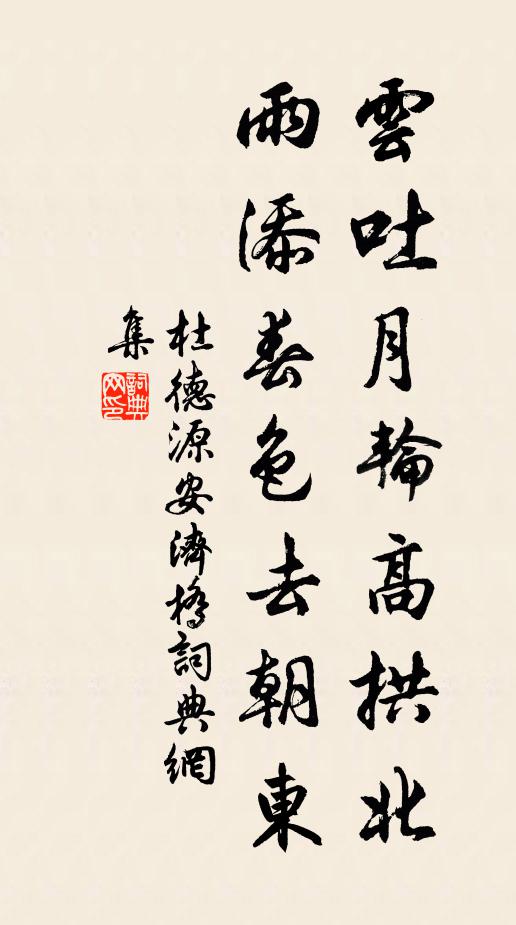 雲吐月輪高拱北
雨添春色去朝東
杜德源安濟橋詞典網
集
詞典網印